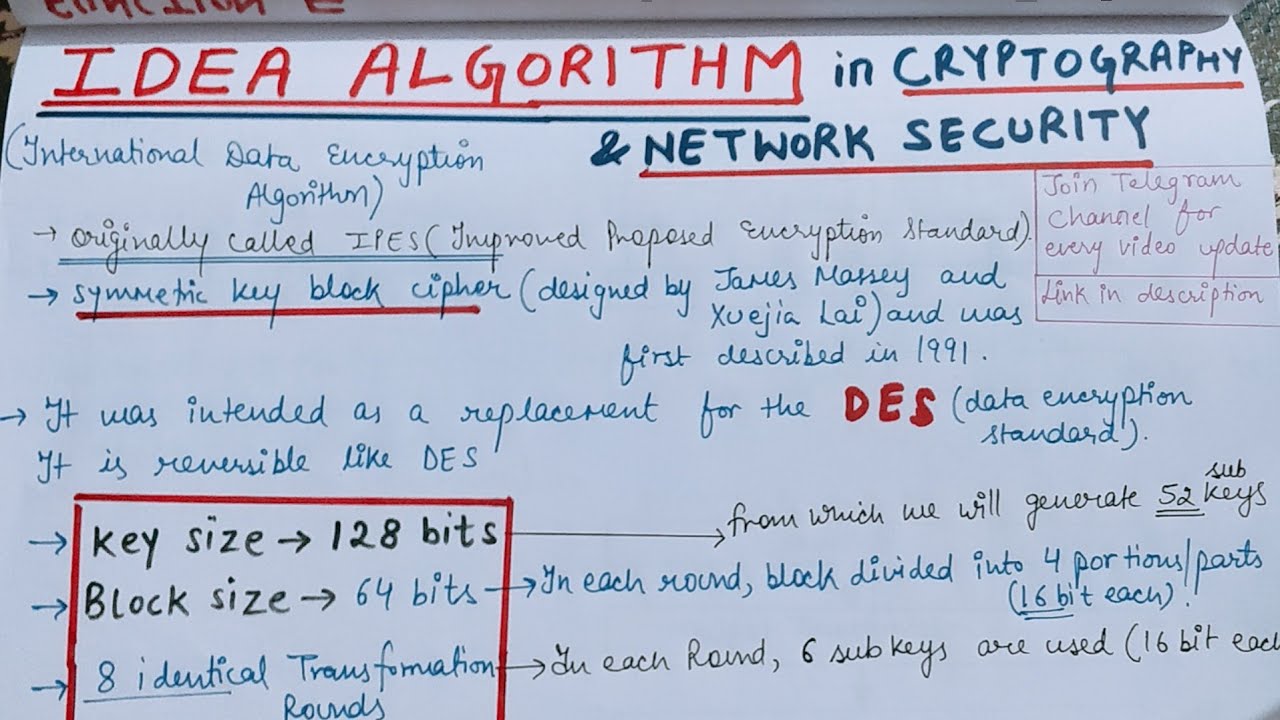 IDEA ALGORITHM in CRYPTOGRAPHY
& NETWORK SECURITY
(International Data Encryption
Algorithm)
Join Telegram
Channel for
every video update
Link in description
→ originally called IPES (Improved Proposed Encryption Standard).
→ symmetric key block cipher (designed by James Massey and
Xuejia Lai) and was
first described in 1991.
→ It was intended as a replacement for the DES (data encryption
standard).
It is reversible like DES
→ Key size → 128 bits → from which we will generate 52 sub keys
→ Block size → 64 bits → In each round, block divided into 4 portions/parts
(16 bit each).
→ 8 identical Transformation → In each Round, 6 subkeys are used (16 bit eac
Rounds